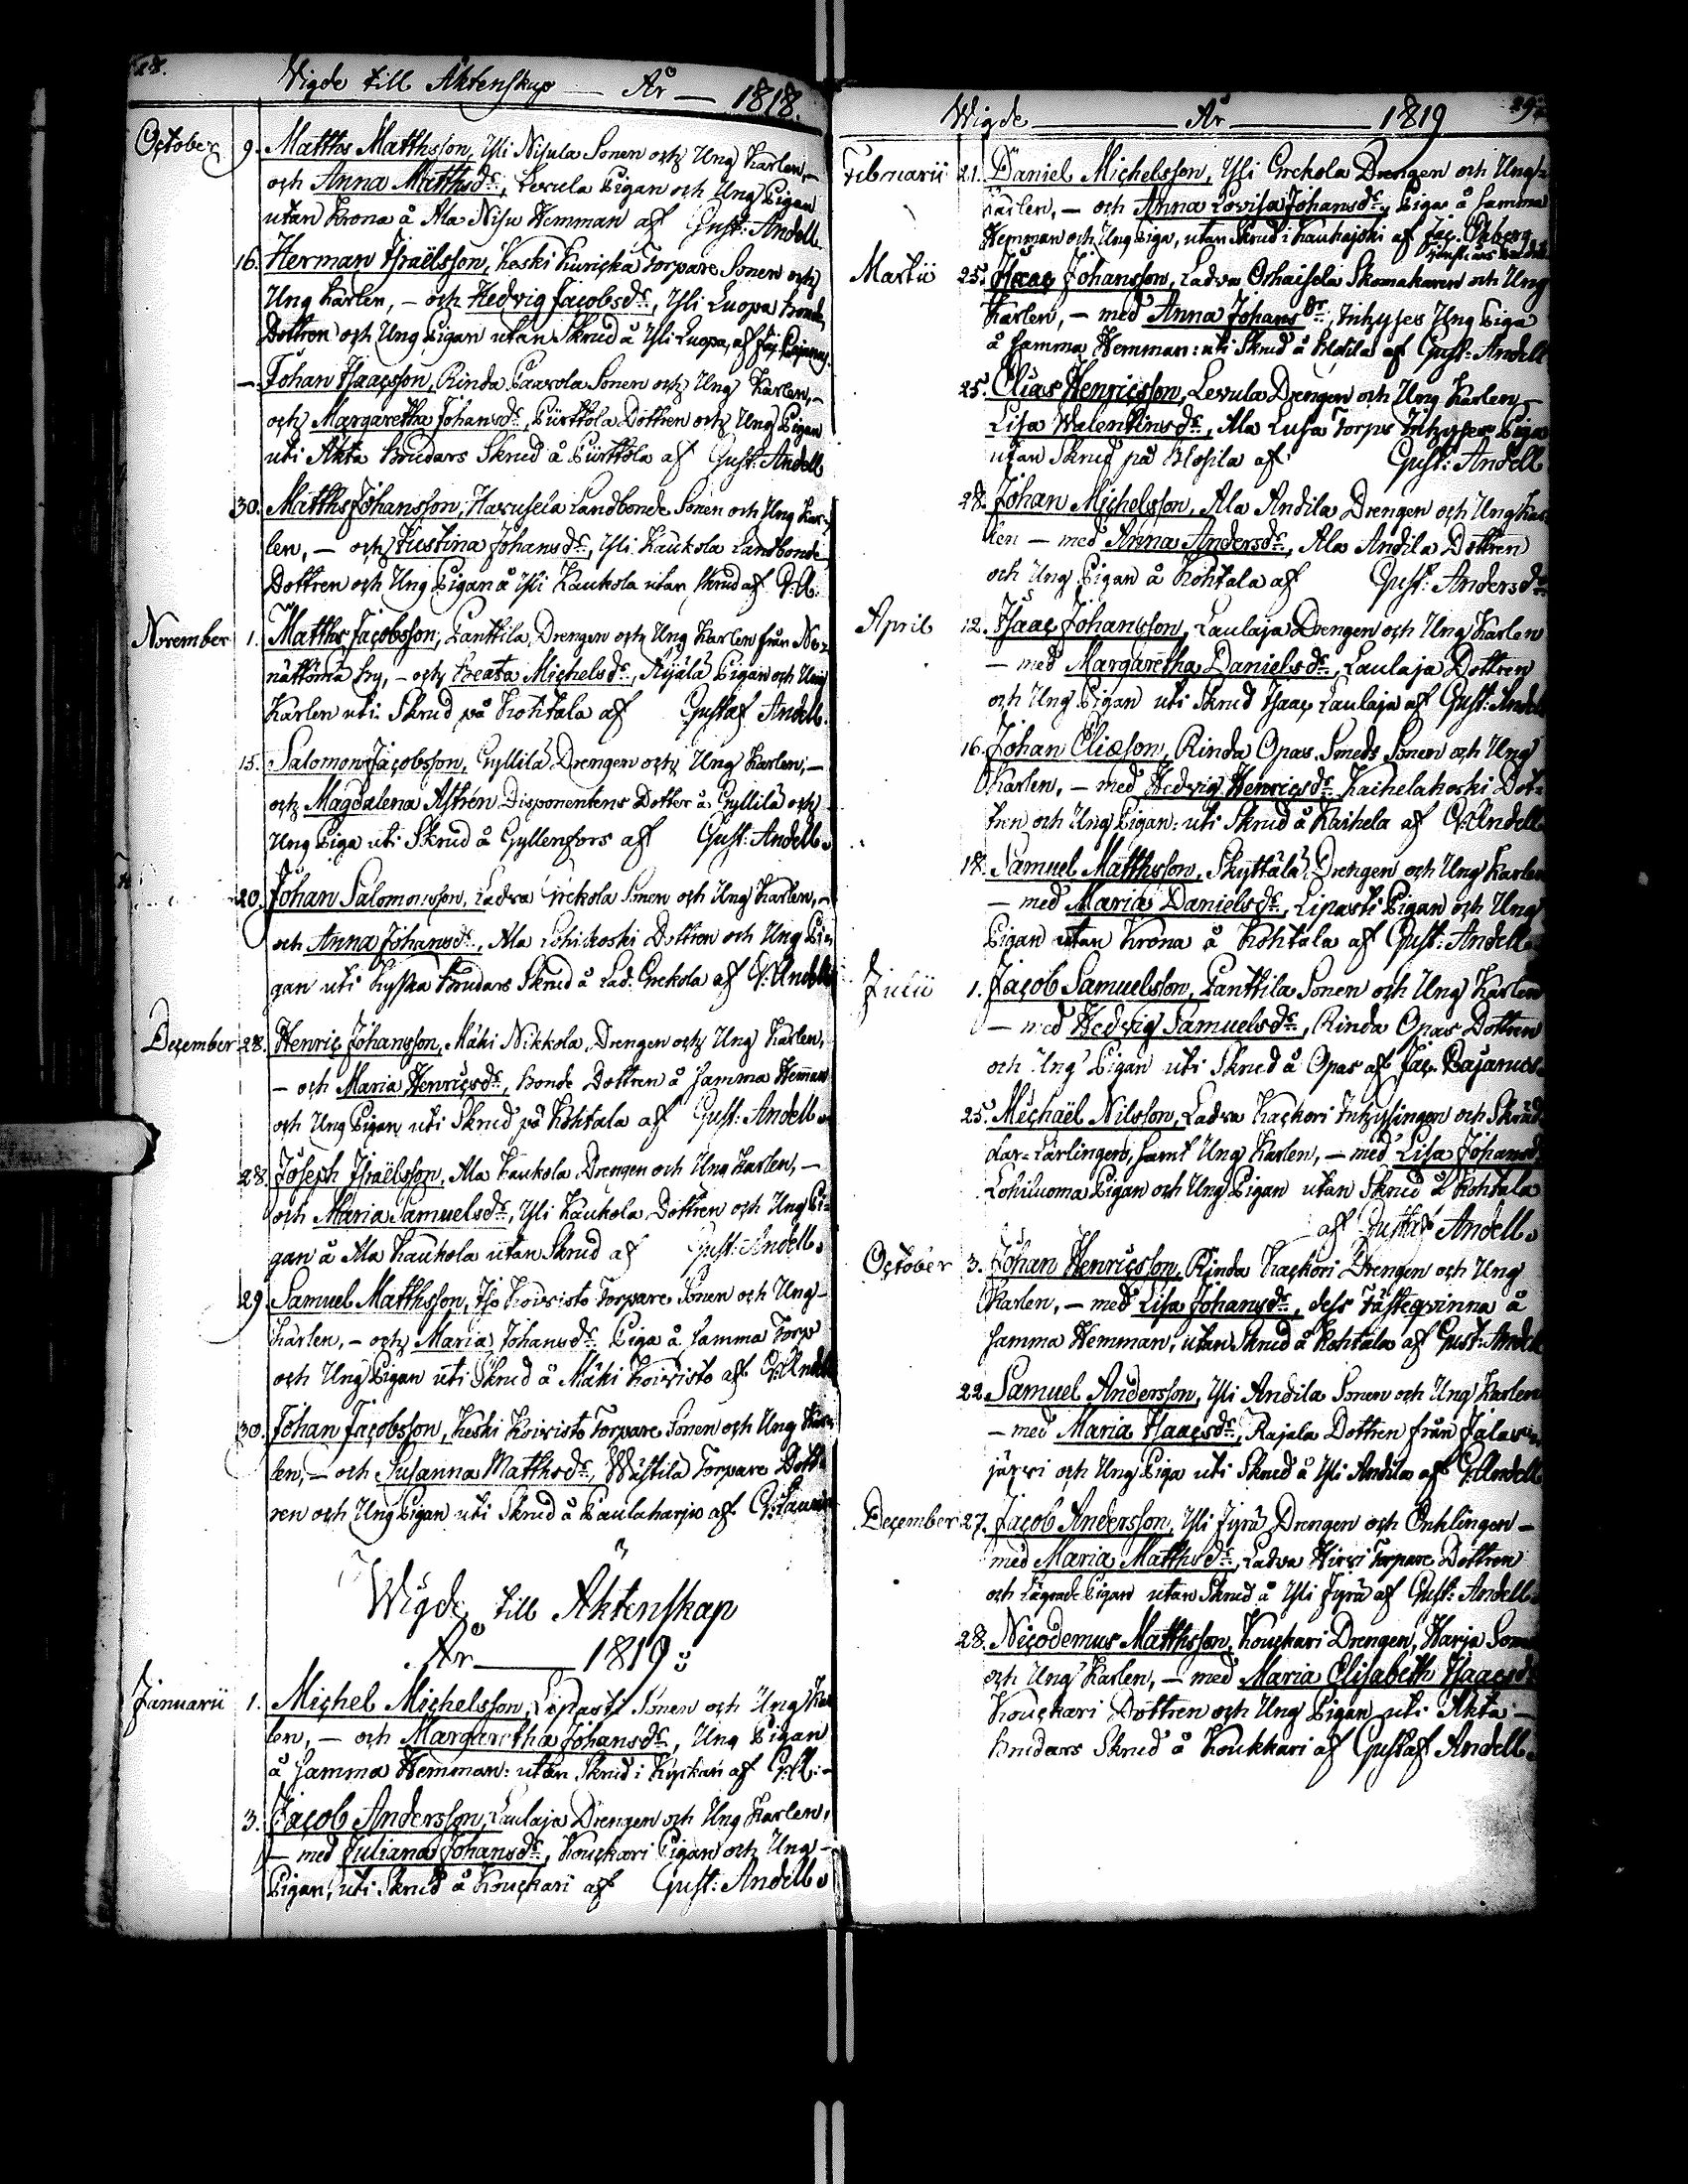 Wigde till Äktenskap — År — 1818.
October 9. Matths Matthsson, Yli Nisula Sonen och Ung Karlen, –
och Anna Matthsdr, Levula Pigan och Ung Pigan
utan Krona å Ala Nisu Hemman af Gust: Andell
16. Herman Israëlsson, Keski Kuricka Torpare Sonen och
Ung Karlen, – och Hedvig Jacobsdr, Yli Luopa Bonde
Dottren och Ung Pigan utan Skrud å Yli Luopa, af Jac. Bajanus.
–. Johan Isaacsson, Rinda Paavola Sonen och Ung Karlen, –
och Margaretha Johansdr, Pürttola Dottren och Ung Pigan
uti Äkta Brudars Skrud å Pürttola af Gust: Andell
30. Matths Johansson, Havusela Landbonde Sonen och Ung Kar-
len, – och Justina Johansdr, Yli Kaukola Landbonde
Dottren och Ung Pigan å Yli Kaukola utan Skrud af G: A:
November 1. Matths Jacobsson, Panttila Drengen och Ung Karlen från
nättömä by, – och Beata Michelsdr, Äijälä Pigan och Ung
Karlen uti Skrud på Kohtala af Gustaf Andell.
15. Salomon Jacobsson, Gyllilä Drengen och Ung Karlen, –
och Magdalena Astrén Disponentens Dotter å Gyllilä och
Ung Piga uti Skrud å Gyllenfors af Gust: Andell.
20. Johan Salomonsson, Ladva Grekola Sonen och Ung Karlen, –
och Anna Johansdr, Ala Lohikoski Dottren och Ung Pi-
gan uti Brudars Skrud å Lad. Grekola af G: Andell
December 28. Henric Johansson, Mäki Nikkola Drengen och Ung Karlen,
– och Maria Henricsdr, Bonde Dottren å samma Hemman
och Ung Pigan uti Skrud på Kohtala af Gust: Andell.
28. Joseph Israëlsson, Ala Kaukola Drengen och Ung Karlen, –
och Maria Samuelsdr, Yli Kaukola Dottren och Ung Pi-
gan å Ala Kaukola utan Skrud af Gust: Andell.
29 Samuel Matthsson, Iso Koivisto Torpare Sonen och Ung-
karlen, – och Maria Johansdr Piga å samma Torp
och Ung Pigan uti Skrud å Mäki Koivisto af G: Andell
30. Johan Jacobsson, Keski Koivisto Torpare Sonen och Ung Kar-
len, – och Susanna Matthsdr, Wästilä Torpare Dott-
ren och Ung Pigan uti Skrud å Paulaharju af
Wigde till Äktenskap
År — 1819:
Januarii 1. Michel Michelsson, Lipasti Sonen och Ung Kar
len, – och Margaretha Johansdr, Ung Pigan
å samma Hemman: utan Skrud i Kyrkan af G: A: –
3. Jacob Andersson, Laulaja Drengen och Ung Karlen,
– med Juliana Johansdr, Kouckari Pigan och Ung –
Pigan, uti Skrud å Kouckari af Gust: Andell.
Wigde — År — 1819
Februarii 21. Daniel Michelsson, Yli Grekola Drengen och Ung-
karlen, – och Anna Lovisa Johansdr, Pigan å samma
Hemman och Ung Piga, utan Skrud i Kauhajoki af Jac. Okberg
Martii 25. Isaac Johansson, Ladva Skomakaren och Ung
Karlen, – med Anna Johansdr, Inhyses Ung Piga
å samma Hemman: uti Skrud å af Gust: Andell
25. Elias Henricsson, Levula Drengen och Ung Karlen –
Lisa Walentinsdr, Ala Lusa Torps Inhyses Piga
utan Skrud på af Gust: Andell
28. Johan Michelsson, Ala Andila Drengen och Ung Kar
len – med Anna Andersdr, Ala Andila Dottren
och Ung Pigan å Kohtala af Gust: Andersdr
April 12. Isaac Johansson, Laulaja Drengen och Ung Karlen
– med Margaretha Danielsdr, Laulaja Dottren
och Ung Pigan uti Skrud Isaac Laulaja af Gust: Andell
16. Johan Eliæson, Rinda Opas Smeds Sonen och Ung
Karlen, – med Hedvig Henricsdr Kaihelakoski Dot-
tren och Ung Pigan: uti Skrud å Kaihela af G: Andell
18. Samuel Matthsson, Skyttälä Drengen och Ung Karlen
– med Maria Danielsdr, Lipasti Pigan och Ung
Pigan utan Krona å Kohtala af Gust: Andell.
Julii 1. Jacob Samuelsson, Panttila Sonen och Ung Karlen
– med Hedvig Samuelsdr, Rinda Opas Dottren
och Ung Pigan uti Skrud å Opas af Jac. Bajanus.
25. Michaël Nilsson, Ladva Kackori Inhysingen och Skräd
dar-Lärlingen, samt Ung Karlen, – med Lisa Johansd
Lohiluoma Pigan och Ung Pigan utan Skrud å Kohtala
af Gustaf Andell.
October 3. Johan Henricsson, Rinda Kackori Drengen och Ung
Karlen, – med Lisa Johansdr, dess Fästeqvinna å
samma Hemman, utan Skrud å Kohtala af Gust: Andell
22. Samuel Andersson, Yli Andila Sonen och Ung Karlen
– med Maria Isaacsdr, Rajala Dottren från Jalas-
järvi och Ung Piga uti Skrud å Yli Andila af G: Andell
December 27. Jacob Andersson, Yli Jyrä Drengen och Enklingen –
med Maria Matthsdr, Ladva Hirvi Torpare Dottren
och Lägrade Pigan utan Skrud å Yli Jyrä af Gust: Andell.
28. Nicodemus Matthsson, Kouckari Drengen, Harja Sonen
och Ung Karlen, – med Maria Elisabeth Isaacsd
Kouckari Dottren och Ung Pigan uti Äkta –
Brudars Skrud å Koukkari af Gustaf Andell.